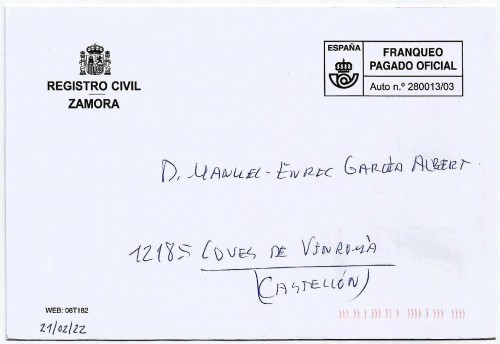 REGISTRO CIVIL
ZAMORA
ESPAÑA
FRANQUEO
PAGADO OFICIAL
Auto n.º 280013/03
D. MANUEL-ENRIC GARCÍA ALBERT
12185 COVES DE VINROMÀ
(CASTELLÓN)
WEB: 08T182
21/02/22